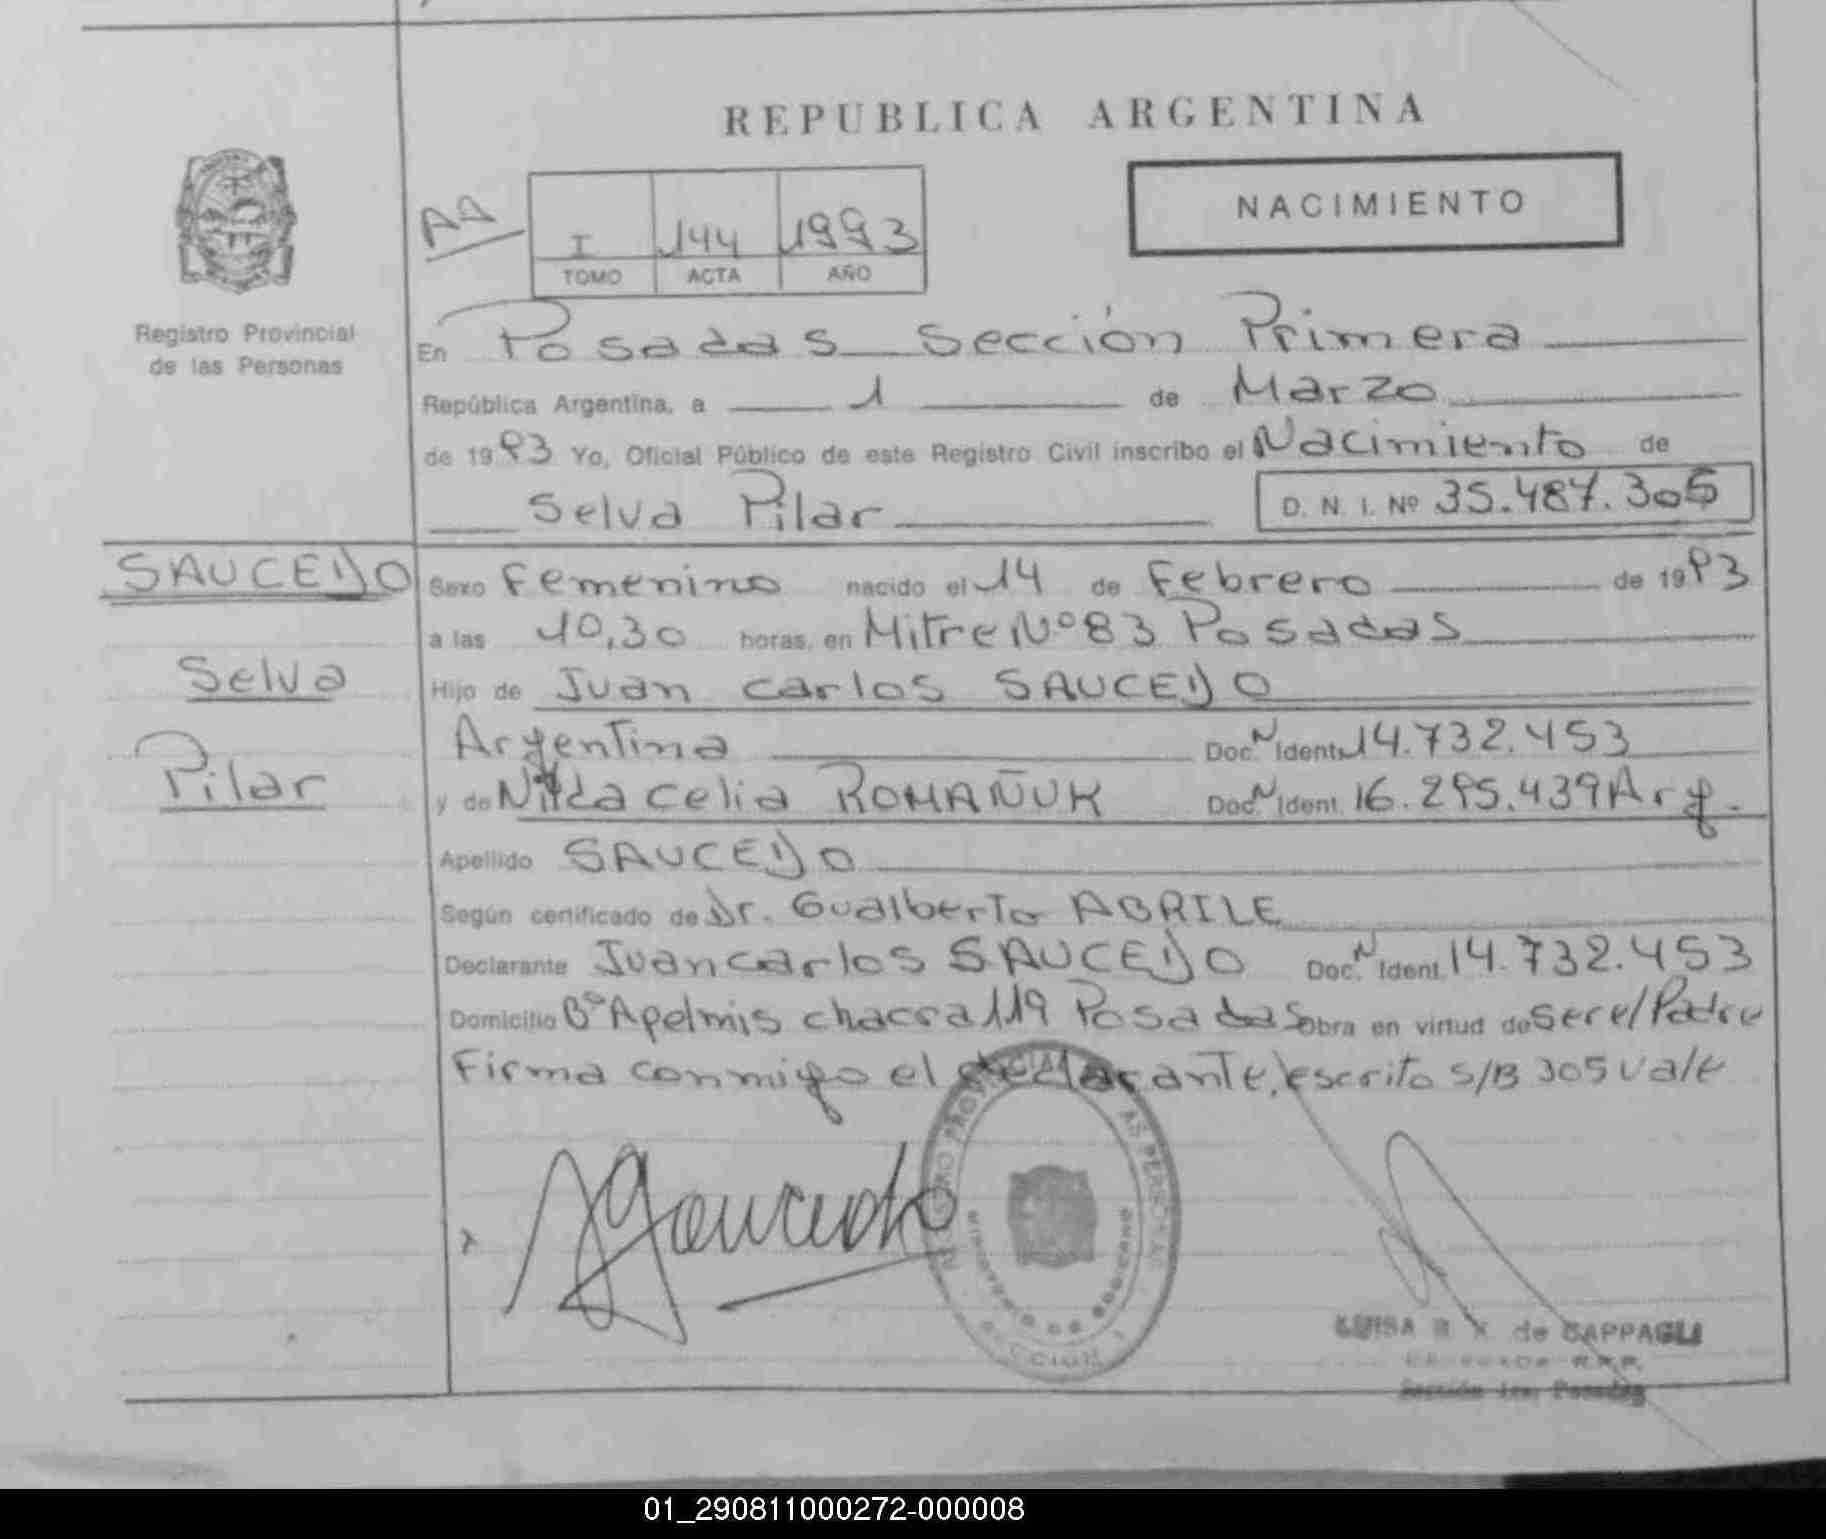 REPUBLICA ARGENTINA
NACIMIENTO
AA
I 144 1993
TOMO ACTA AÑO
Registro Provincial
de las Personas
En Posadas Sección Primera
República Argentina, a 1 de Marzo
de 1993 Yo, Oficial Público de este Registro Civil inscribo el Nacimiento de
Selva Pilar D. N. I. Nº 35.487.305
SAUCEDO
Selva
Pilar
Sexo Femenino nacido el 14 de Febrero de 1993
a las 10,30 horas, en Mitre Nº 83 Posadas
Hijo de Juan Carlos SAUCEDO
Argentina Doc. N Ident. 14.732.453
y de Nilda Celia ROMAÑUK Doc. N Ident. 16.295.439 Arg.
Apellido SAUCEDO
Según certificado de Dr. Gualberto ABRILE
Declarante Juan Carlos SAUCEDO Doc. N Ident. 14.732.453
Domicilio Bº Apelmis chacra 119 Posadas Obra en virtud de ser el Padre
Firma conmigo el declarante, escrito s/B 305 vale
Saucedo
MINISTERIO DE GOBIERNO
SECCION 1
LUISA de CAPPAGLI
Sección 1ra. Posadas
01_290811000272-000008